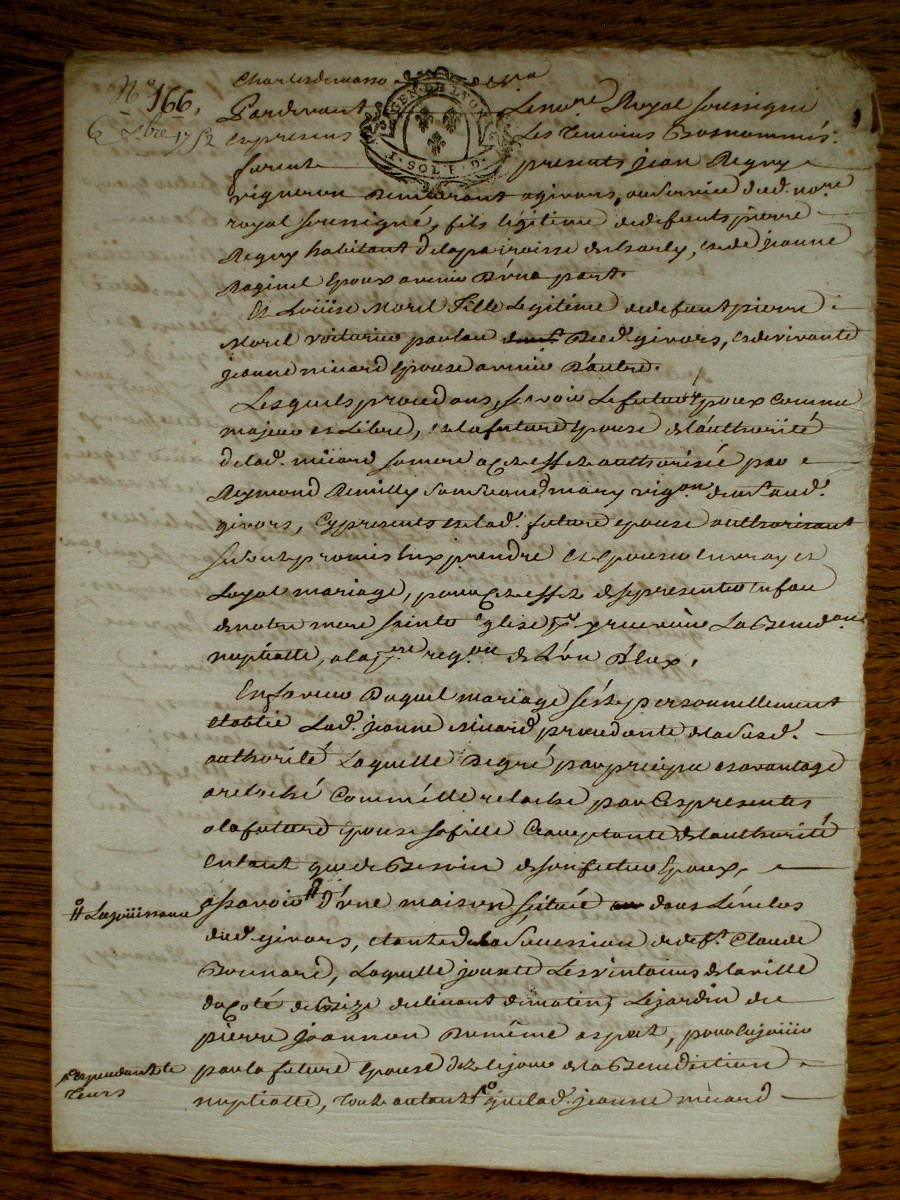 N° 166,
6 Xbre 1752
Charlesdemasso
GEN. DE LYON
1. SOL. F. D.
Pardevant Le no.re Royal soussigné
et en presens Les temoins Basnommés.
furent presents jean Regny
vigneron Demeurant a givors, au service dud. no.re
royal soussigné, fils légitime de defunts pierre
Regny habitant dela parroisse de charly, et de jeanne
Raginel Epoux avenir D'une part.
Et Loüise Morel Fille Legitime de defunt pierre
Morel voiturier par eau Dud. givors, et de vivante
jeanne micard Epouse avenir D'autre.
Lesquels procedans, sçavoir Le futur Epoux comme
majeur et Libre, et la future Epouse de l'authorité
de lad. micard sa mere a cet effet authorisée par
Reymond Remilly son second mary vig.on dud.
givors, cy presents et lad. future epouse authorisant
se sont promis eux prendre et Epouser en vray et
Loyal mariage, pour cet effet de se presenter en face
de notre mere sainte Eglise p.r y recevoir La Bened.on
nuptialle, a la p.ere req.on de L'un D'Eux.
En faveur Duquel mariage s'est personnellement
etablie Lad. jeanne Micard procedante de la susd.
authorité Laquelle De gré par precipu et avantage
a relaché Comm'elle relache par Ces presentes
a la future Epouse sa fille acceptante de l'authorité
Entant que de Besoin de son futur Epoux,
assavoir # D'une maison scituée dans L'enclos
dud. givors, et dela succession de def.t Claude
Bonnard, Laquelle jouxte Les vintains de la ville
du coté de Bize de levant de matin, Le jardin de
pierre joannon Du même aspet, pour la jouir
par la future epouse dez le jour de la Benediction
nuptialle, tout autant que lad. jeanne micard
# La jouissance
et pendant le
cours